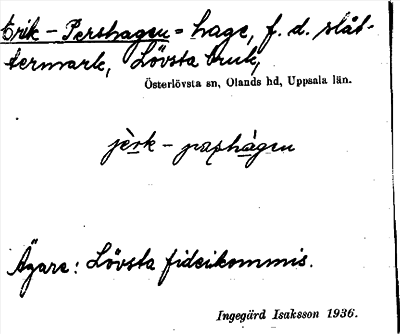 Erik-Pershagen = hage, f. d. slåt-
termark, Lövsta bruk,
Österlövsta sn, Olands hd, Uppsala län.
jèrk-paṣhàgen
Ägare: Lövsta fideikommis.
Ingegärd Isaksson 1936.